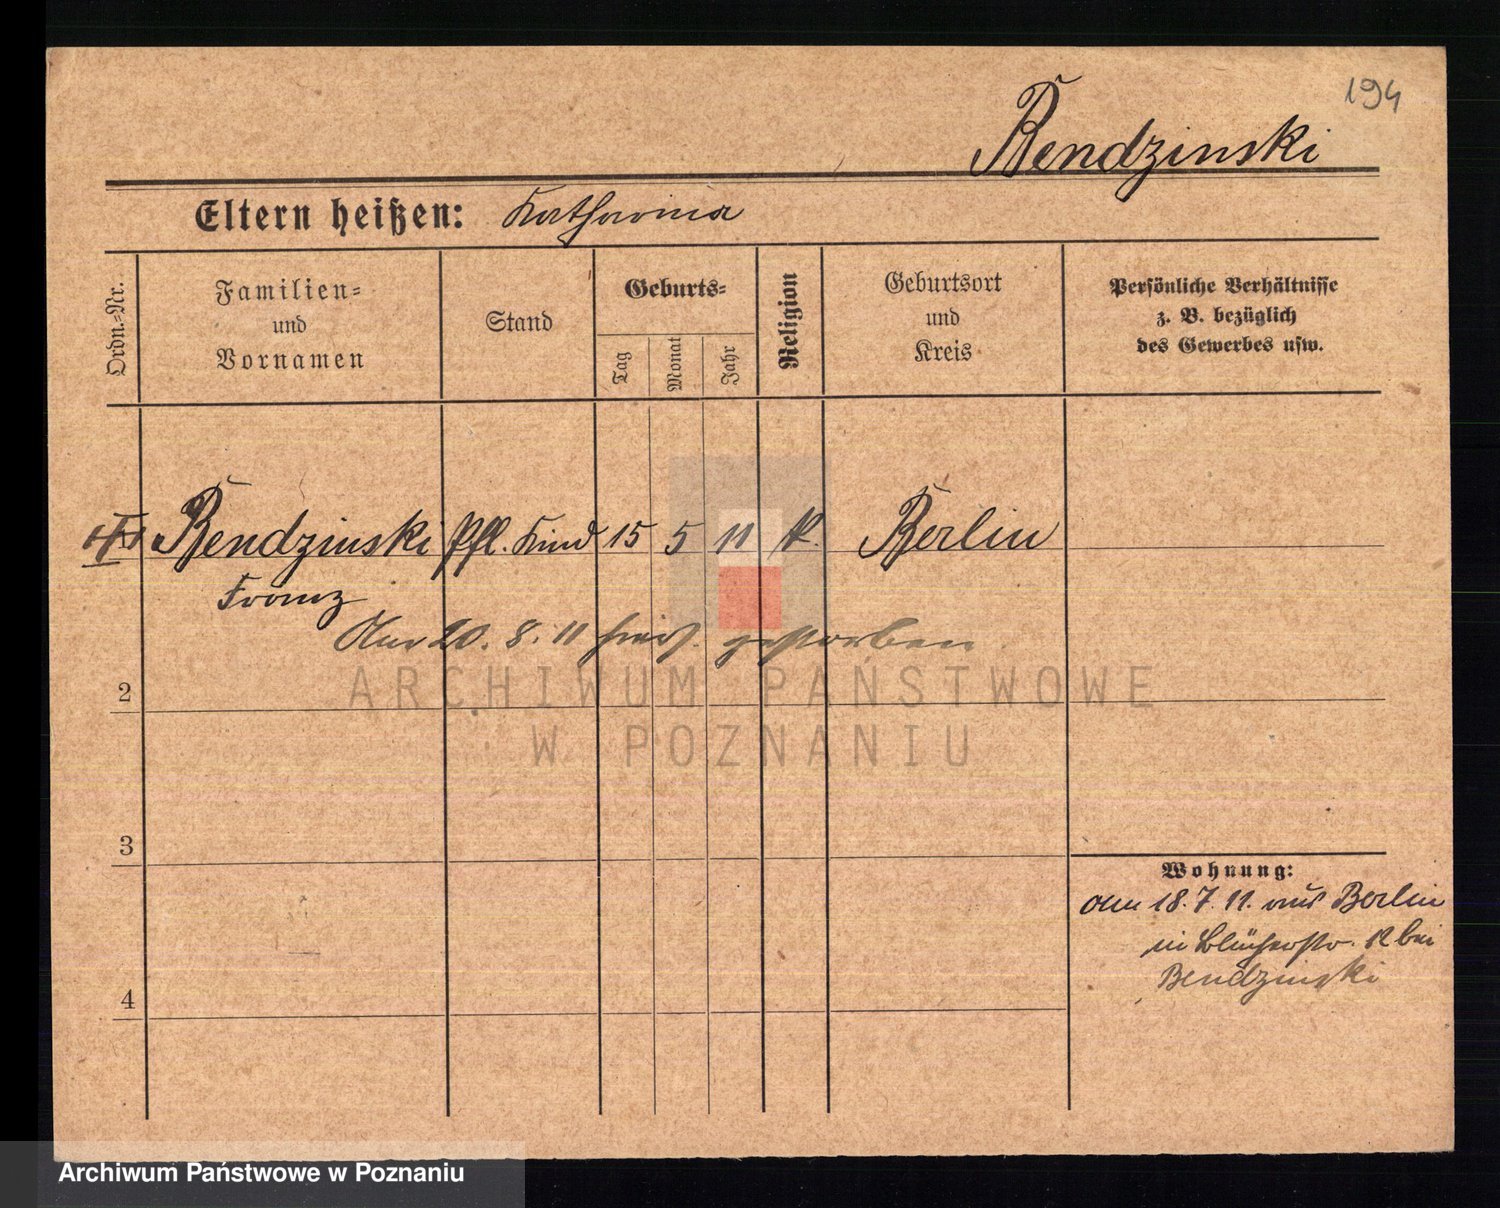 194
Bendzinski
Eltern heißen: Katharina
Ordn.-Nr.
Familien-
und
Vornamen
Stand
Geburts-
Tag
Monat
Jahr
Religion
Geburtsort
und
Kreis
Persönliche Verhältnisse
z. B. bezüglich
des Gewerbes usw.
Bendzinski Pfl. Kind 15 5 11 k. Berlin
Franz
Am 20. 8. 11 hier gestorben.
2
ARCHIWUM PAŃSTWOWE
W POZNANIU
3
Wohnung:
am 18. 7. 11. aus Berlin
in Blücherstr. 12 bei
Bendzinski
4
Archiwum Państwowe w Poznaniu